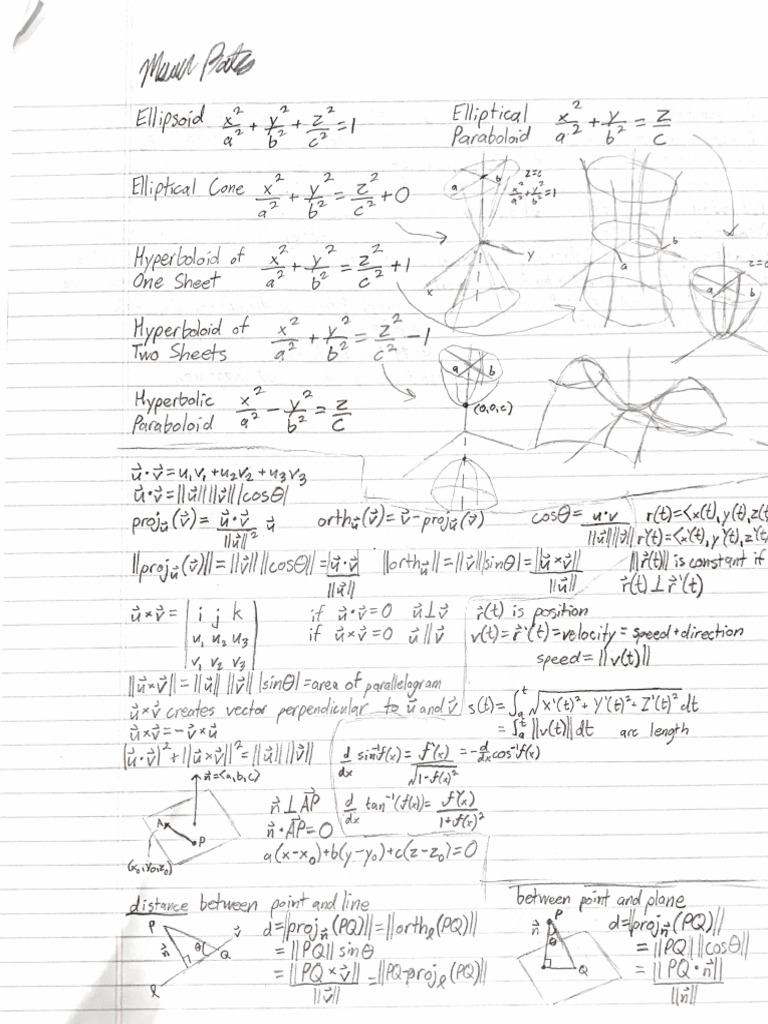 Ellipsoid x²/a² + y²/b² + z²/c² = 1
Elliptical Paraboloid x²/a² + y²/b² = z/c
Elliptical Cone x²/a² + y²/b² = z²/c² + 0
a b z=c x²/a² + y²/b² = 1
x y
a b
Hyperboloid of One Sheet x²/a² + y²/b² = z²/c² + 1
a b z=c
Hyperboloid of Two Sheets x²/a² + y²/b² = z²/c² - 1
a b
(0,0,c)
Hyperbolic Paraboloid x²/a² - y²/b² = z/c
u⃗·v⃗ = u₁v₁ + u₂v₂ + u₃v₃
u⃗·v⃗ = ||u⃗|| ||v⃗|| |cosθ|
proj_u⃗(v⃗) = u⃗·v⃗/||u⃗||² u⃗
orth_u⃗(v⃗) = v⃗ - proj_u⃗(v⃗)
cosθ = u·v/||u⃗|| ||v⃗||
r(t) = <x(t), y(t), z(t
r'(t) = <x'(t), y'(t), z'(t
||proj_u⃗(v⃗)|| = ||v⃗|| ||cosθ|| = |u⃗·v⃗|/||u⃗||
||orth_u⃗|| = ||v⃗|| |sinθ| = ||u⃗×v⃗||/||u⃗||
||r⃗(t)|| is constant if
r⃗(t) ⊥ r⃗'(t)
u⃗×v⃗ = | i j k |
| u₁ u₂ u₃ |
| v₁ v₂ v₃ |
if u⃗·v⃗ = 0 u⃗ ⊥ v⃗
if u⃗×v⃗ = 0 u⃗ || v⃗
r⃗(t) is position
v(t) = r⃗'(t) = velocity = speed + direction
speed = ||v(t)||
||u⃗×v⃗|| = ||u⃗|| ||v⃗|| |sinθ| = area of parallelogram
u⃗×v⃗ creates vector perpendicular to u⃗ and v⃗
u⃗×v⃗ = -v⃗×u⃗
|u⃗·v⃗|² + ||u⃗×v⃗||² = ||u⃗|| ||v⃗||
s(t) = ∫ₐᵗ √(x'(t)² + y'(t)² + z'(t)²) dt
= ∫ₐᵗ ||v(t)|| dt arc length
d/dx sin⁻¹f(x) = f'(x)/√(1-f(x)²) = -d/dx cos⁻¹f(x)
d/dx tan⁻¹(f(x)) = f'(x)/1+f(x)²
n⃗=<a,b,c>
A
P
(x₀,y₀,z₀)
n⃗ ⊥ AP⃗
n⃗·AP⃗ = 0
a(x-x₀) + b(y-y₀) + c(z-z₀) = 0
distance between point and line
P n⃗ θ Q v⃗ ℓ
d = ||proj_n⃗(PQ)|| = ||orth_ℓ(PQ)||
= ||PQ|| sinθ
= ||PQ×v⃗||/||v⃗|| = ||PQ-proj_ℓ(PQ)||
between point and plane
P n⃗ θ Q
d = ||proj_n⃗(PQ)||
= ||PQ|| ||cosθ||
= ||PQ·n⃗||/||n⃗||